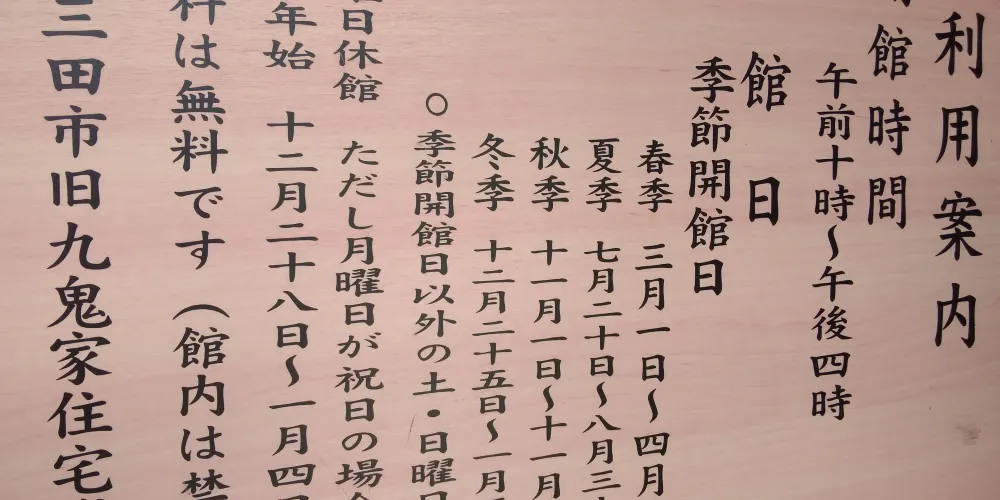 利用案内
館時間
午前十時~午後四時
館日
季節開館日
春季 三月一日~四月
夏季 七月二十日~八月三
秋季 十一月一日~十一月
冬季 十二月二十五日~一月
○季節開館日以外の土・日曜日
日休館 ただし月曜日が祝日の場合
年始 十二月二十八日~一月四日
料は無料です(館内は禁
三田市旧九鬼家住宅